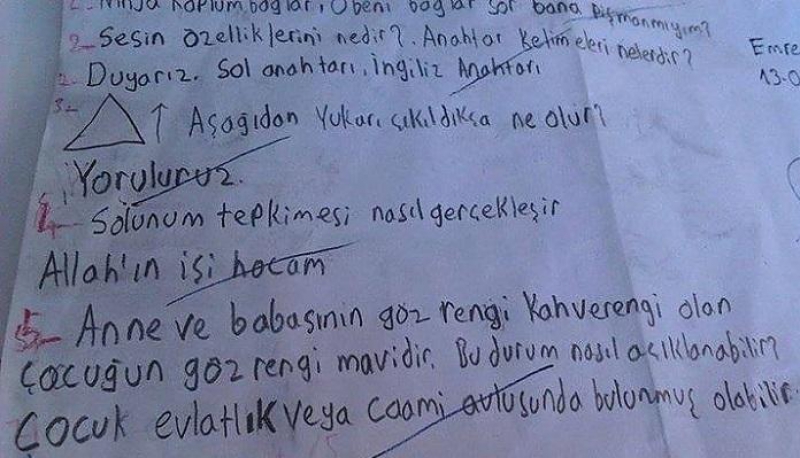 2- Ninja Kaplumbağlar, O beni bağlar sor bana pişmanmıyım?
2- Sesin özelliklerini nedir?. Anahtar kelimeleri nelerdir?
2- Duyarız. Sol anahtarı, İngiliz Anahtarı
3- ↑ Aşağıdan Yukarı çıkıldıkça ne olur?
Yoruluruz.
4- Solunum tepkimesi nasıl gerçekleşir
Allah'ın işi hocam
5- Anne ve babasının göz rengi Kahverengi olan
çocuğun göz rengi mavidir. Bu durum nasıl açıklanabilir?
Çocuk evlatlık veya Caami avlusunda bulunmuş olabilir.
Emre
13-0